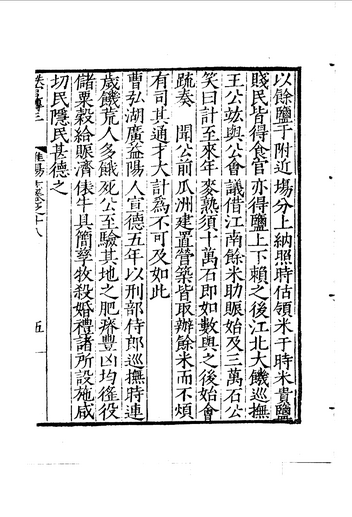 以餘鹽于附近場分上納照時估領米于時米貴鹽
賤民皆得食官亦得鹽上下賴之後江北大饑巡撫
王公竑與公會議借江南餘米助賑始及三萬石公
笑曰計至來年麥熟須十萬石即如數與之後始會
疏奏 聞公前瓜洲建置營築皆取辦餘米而不煩
有司其通才大計為不可及如此
曹弘湖廣益陽人宣德五年以刑部侍郎巡撫時連
歲饑荒人多餓死公至驗其地之肥瘠豐凶均徭役
儲粟穀給賑濟俵牛具簡孳牧殺婚禮諸所設施咸
切民隱民甚德之
五